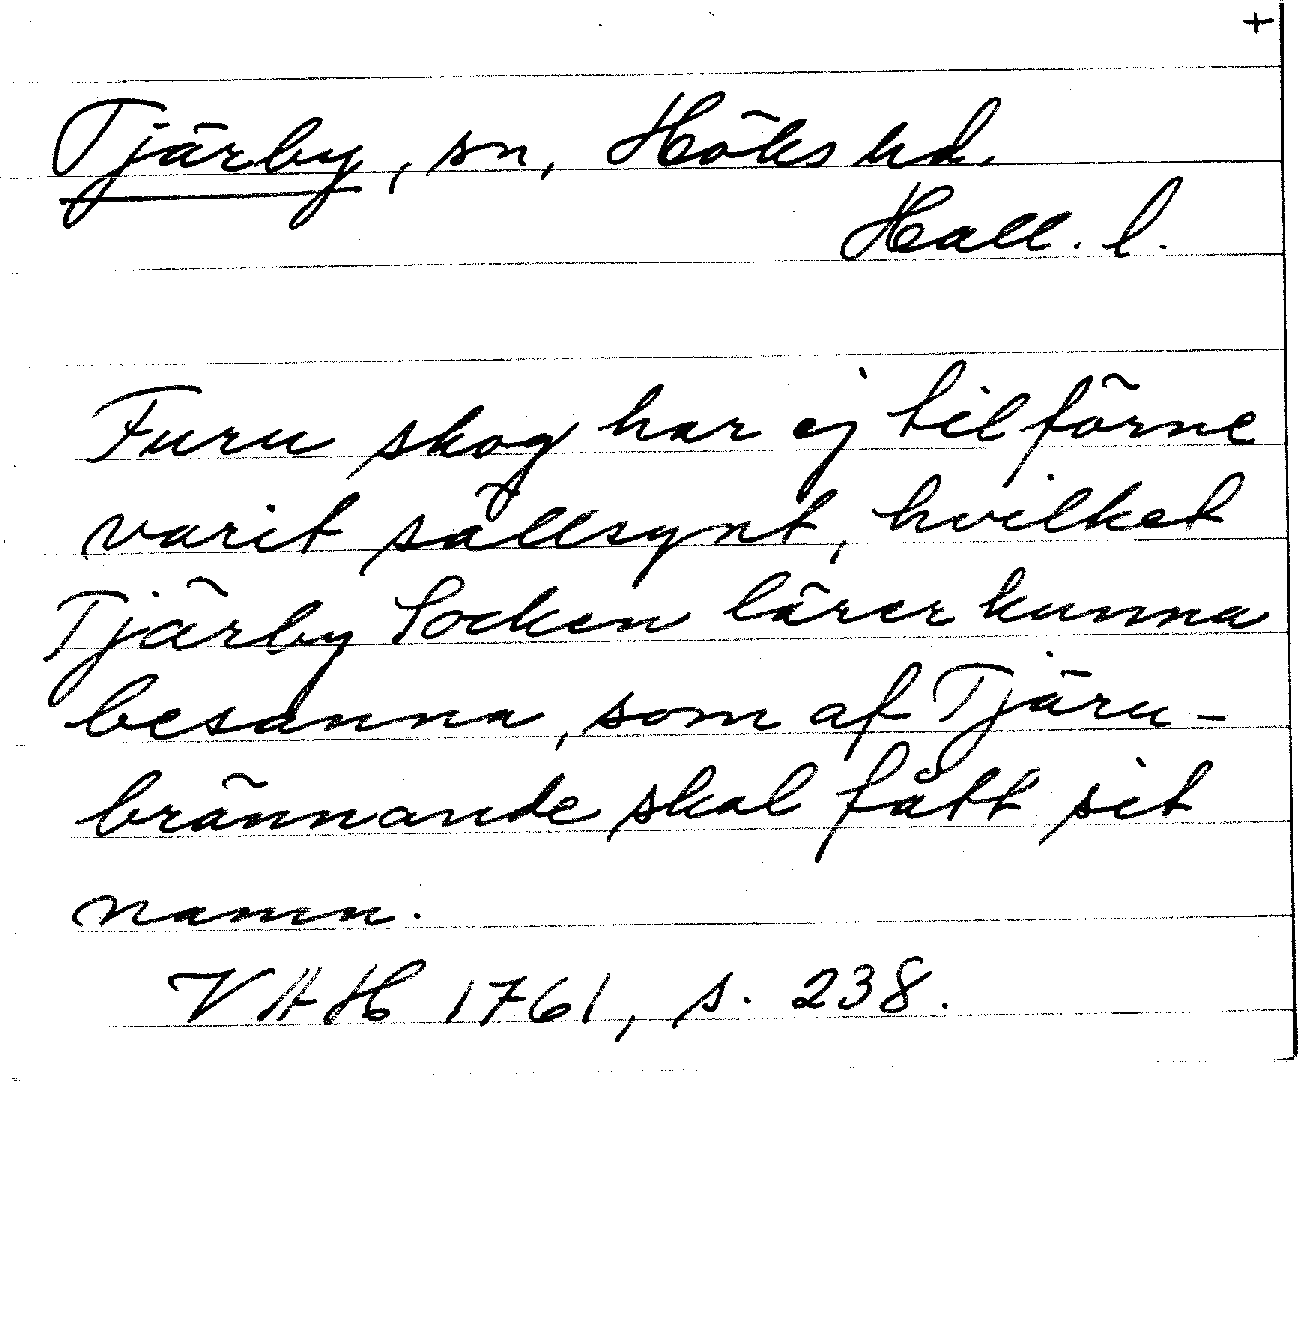 +
Tjärby, sn, Höks hd.
Hall. l.
Furu skog har ej tilförne
varit sällsynt, hvilket
Tjärby Socken lärer kunna
besanna, som af Tjäru-
brännande skal fått sit
namn.
VAH 1761, s. 238.